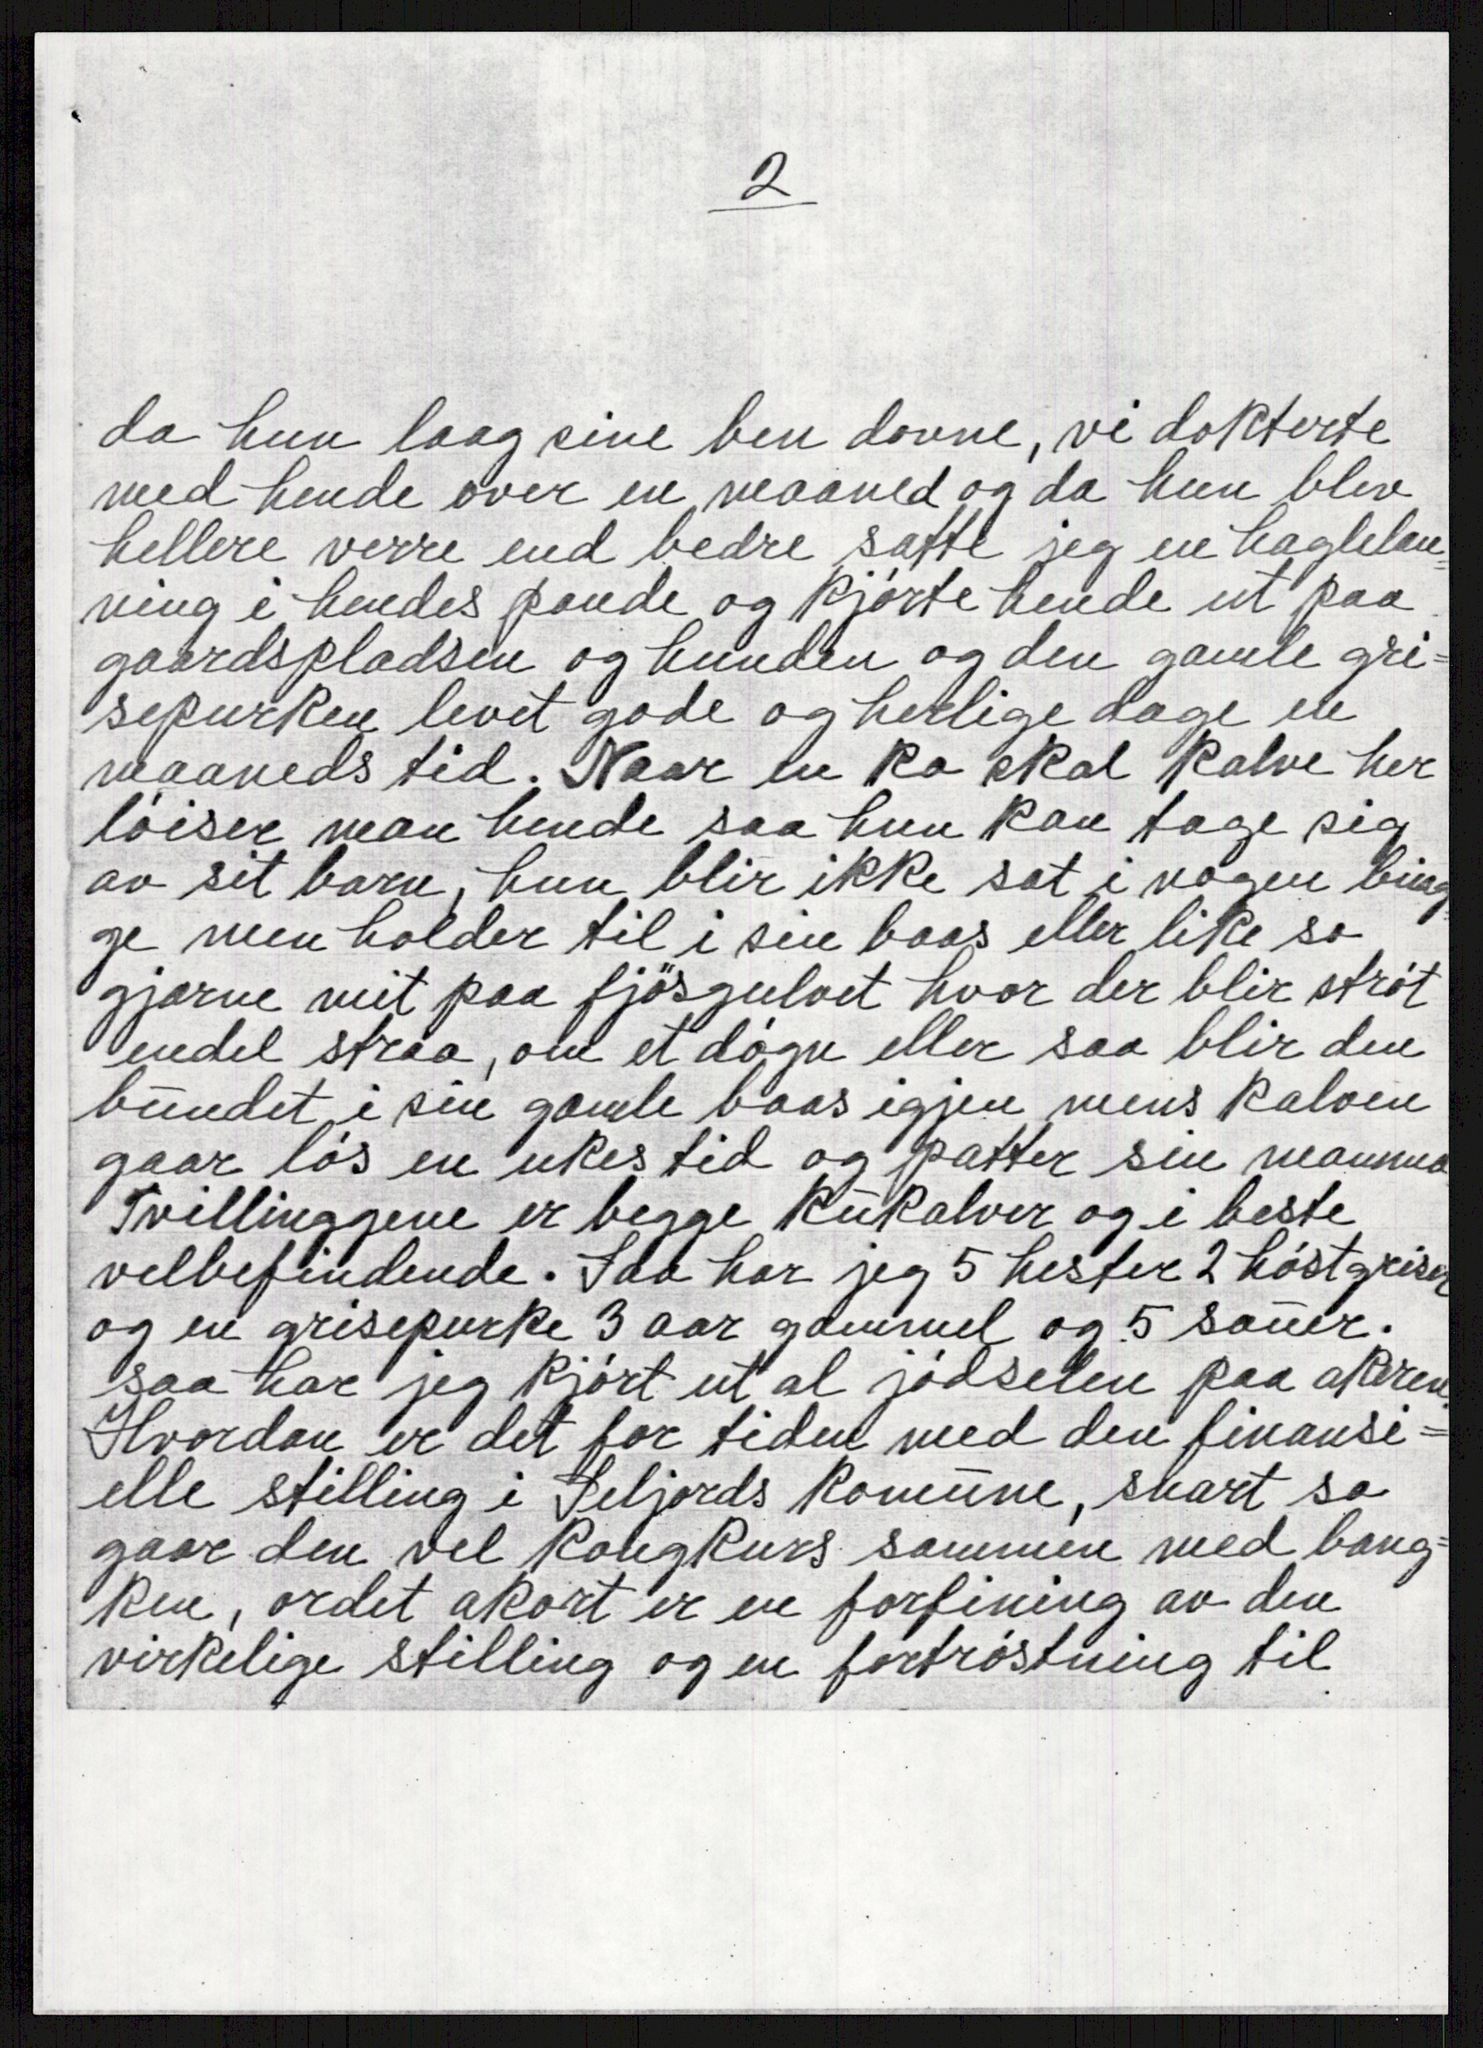 2
da hun laag sine ben dovne, vi dokterte
med hende over en maaned og da hun blev
hellere verre end bedre satte jeg en haglelan=
ning i hendes pande og kjørte hende ut paa
gaardspladsen og hunden og den gamle gri=
sepurken levet gode og herlige dage en
maaneds tid. Naar en ko skal kalve her
løiser man hende saa hun kan tage sig
av sit barn, hun blir ikke sat i nogen bing=
ge men holder til i sin baas eller like so
gjærne mit paa fjösgulvet hvor der blir strøt
endel straa, om et døgn eller saa blir den
bundet i sin gamle baas igjen mens kalven
gaar løs en ukes tid og patter sin mamma
Tvillinggene er begge kukalver og i beste
velbefindende. Saa har jeg 5 hester 2 høstgriser
og en grisepurke 3 aar gammel og 5 sauer.
saa har jeg kjørt ut al jødselen paa akeren.
Hvordan er det for tiden med den finansi=
elle stilling i Seljords Komune, snart so
gaar den vel Kongkurs sammen med bang=
ken, ordet akort er en forfining av den
virkelige stilling og en fortrøstning til